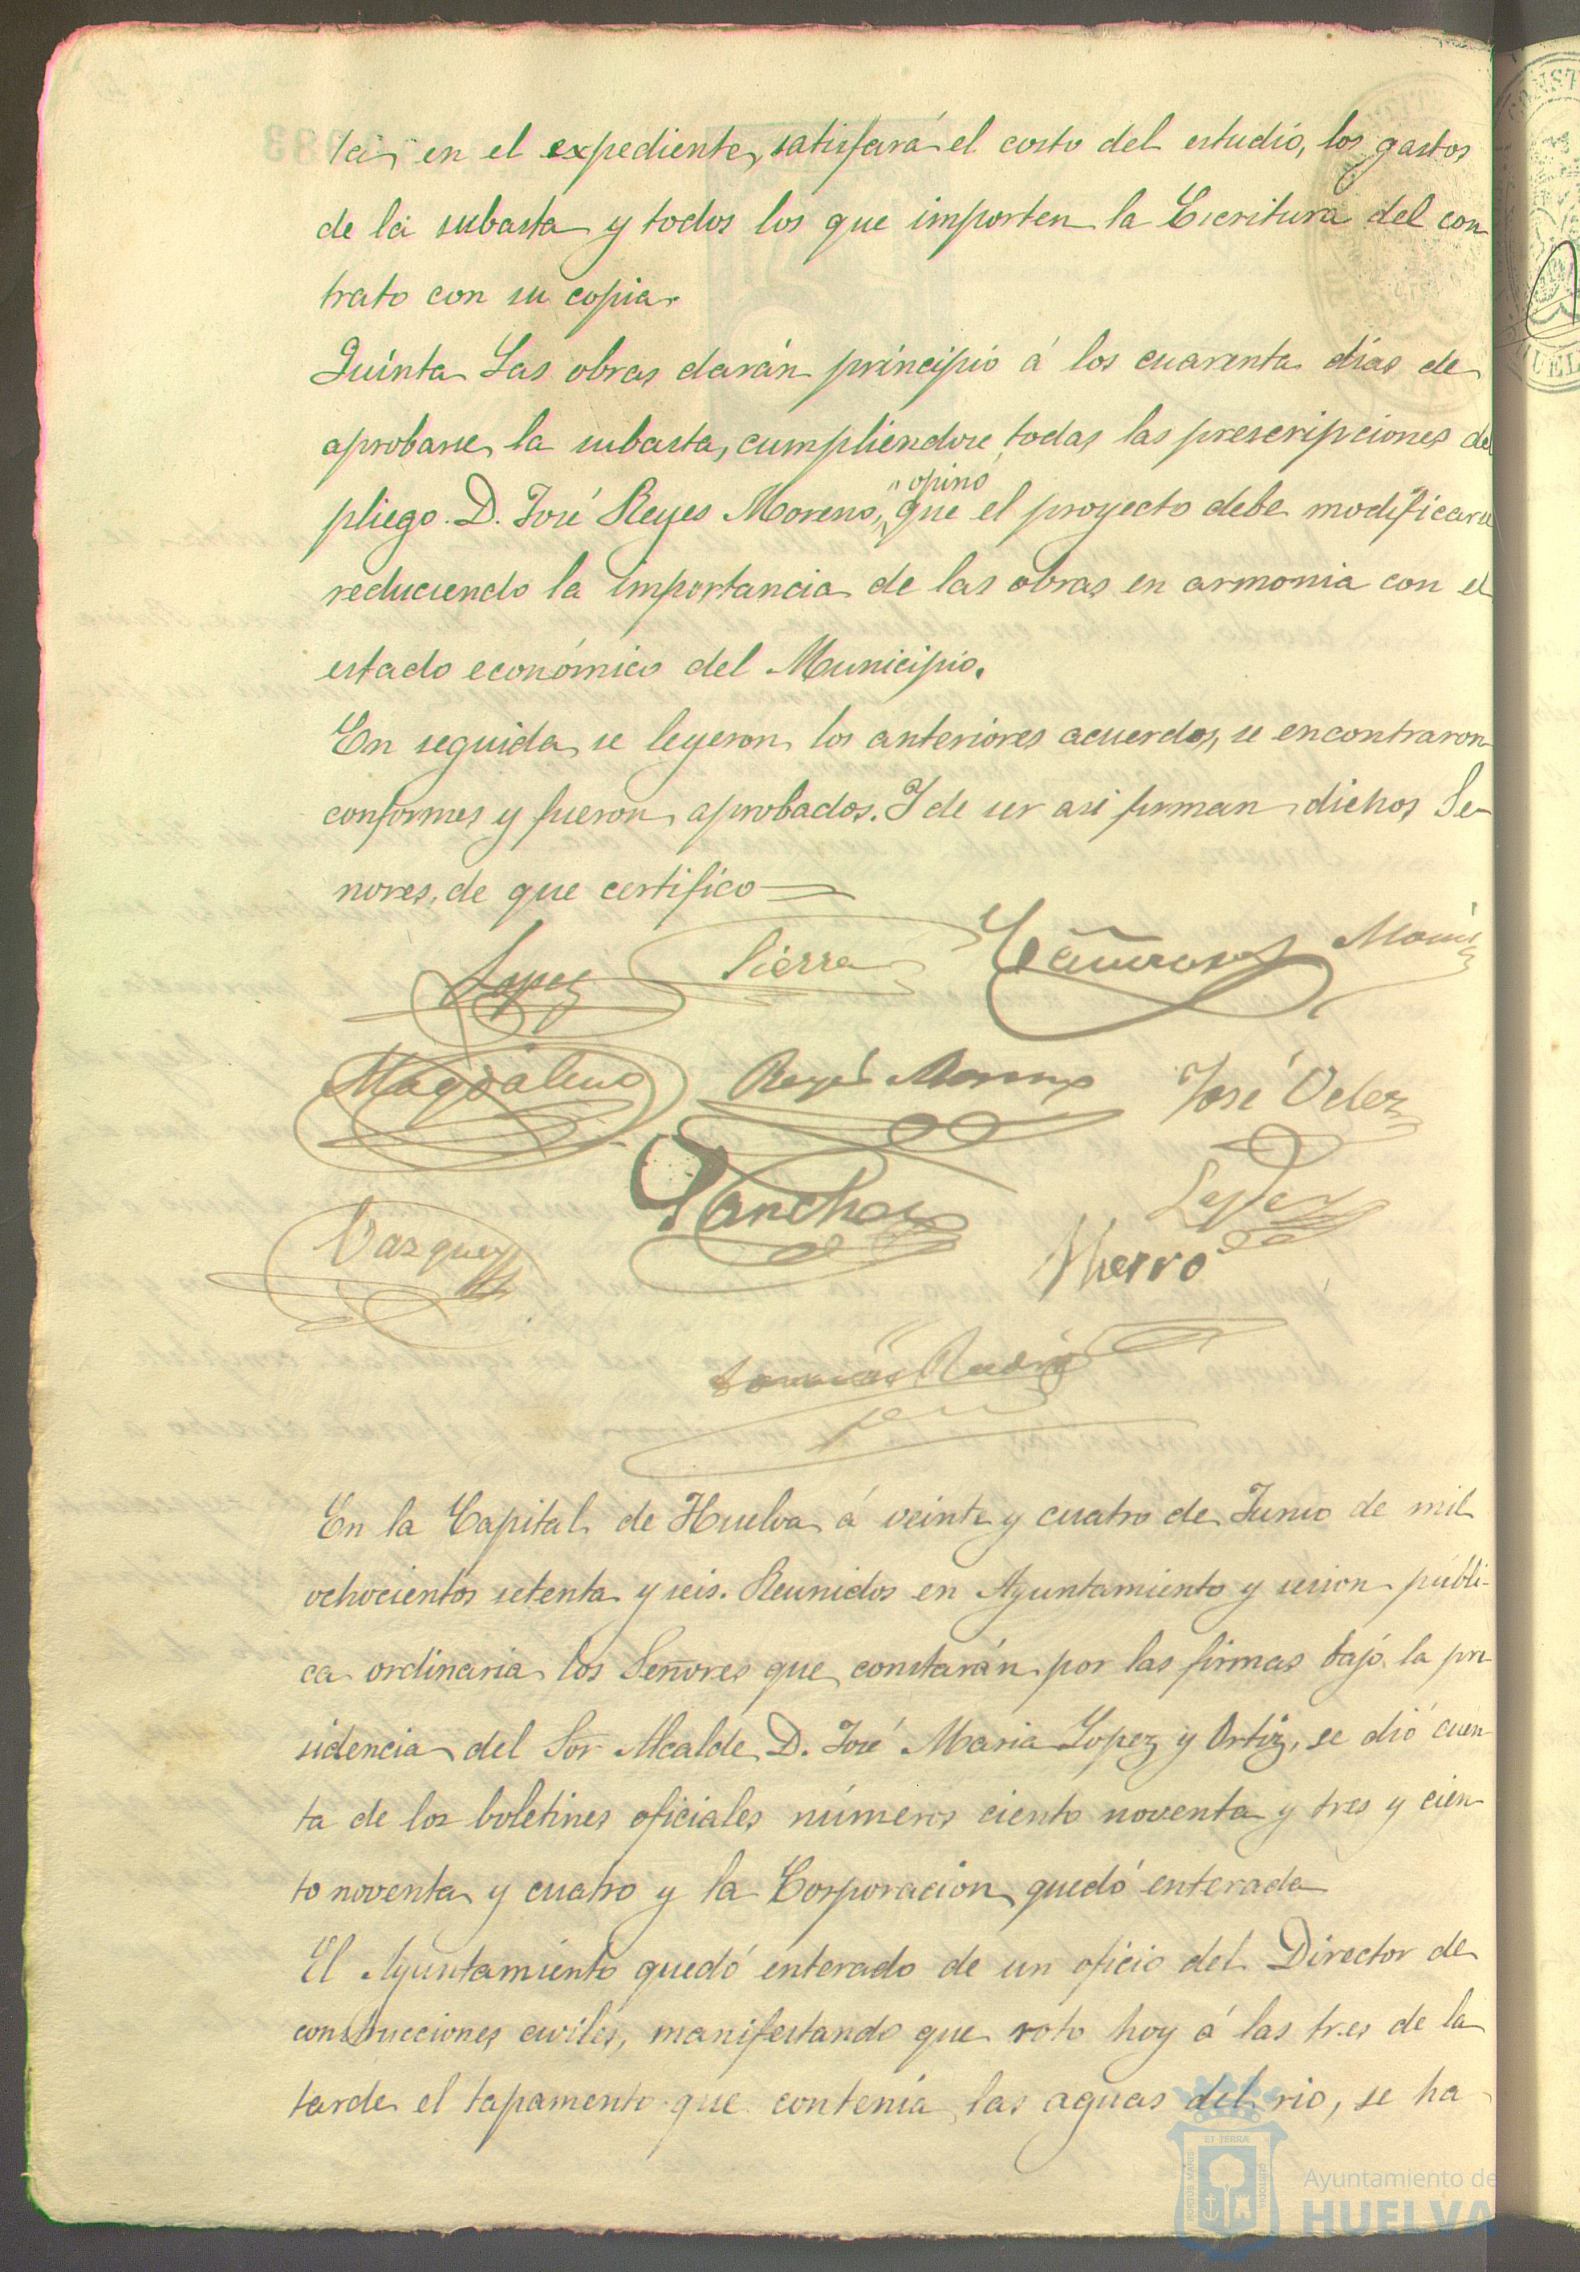 ta en el expediente, satisfará el costo del estudio, los gastos
de la subasta y todos los que importen la Escritura del con
trato con su copia.
Quinta Las obras darán principio á los cuarenta días de
aprobarse la subasta, cumpliendose todas las prescripciones del
opinó
pliego. D. José Reyes Moreno, que el proyecto debe modificarse
reduciendo la importancia de las obras en armonia con el
estado económico del Municipio.
En seguida se leyeron los anteriores acuerdos, se encontraron
conformes y fueron aprobados. Y de ser asi firman dichos Se-
nores, de que certifico
Lopez Sierra
Magdaleno Reyes Moreno José Velez
Vazquez Sanchez
Hierro
En la Capital de Huelva á veinte y cuatro de Junio de mil
ochocientos setenta y seis. Reunidos en Ayuntamiento y sesion públi-
ca ordinaria los Señores que constarán por las firmas bajo la pre
sidencia del Sor Alcalde D. José Maria Lopez y Ortiz, se dió cuen
ta de los boletines oficiales números ciento noventa y tres y cien
to noventa y cuatro y la Corporacion quedó enterada
El Ayuntamiento quedó enterado de un oficio del Director de
construcciones civiles, manifestando que roto hoy á las tres de la
tarde el tapamento que contenía las aguas del rio, se ha
Ayuntamiento de
HUELVA